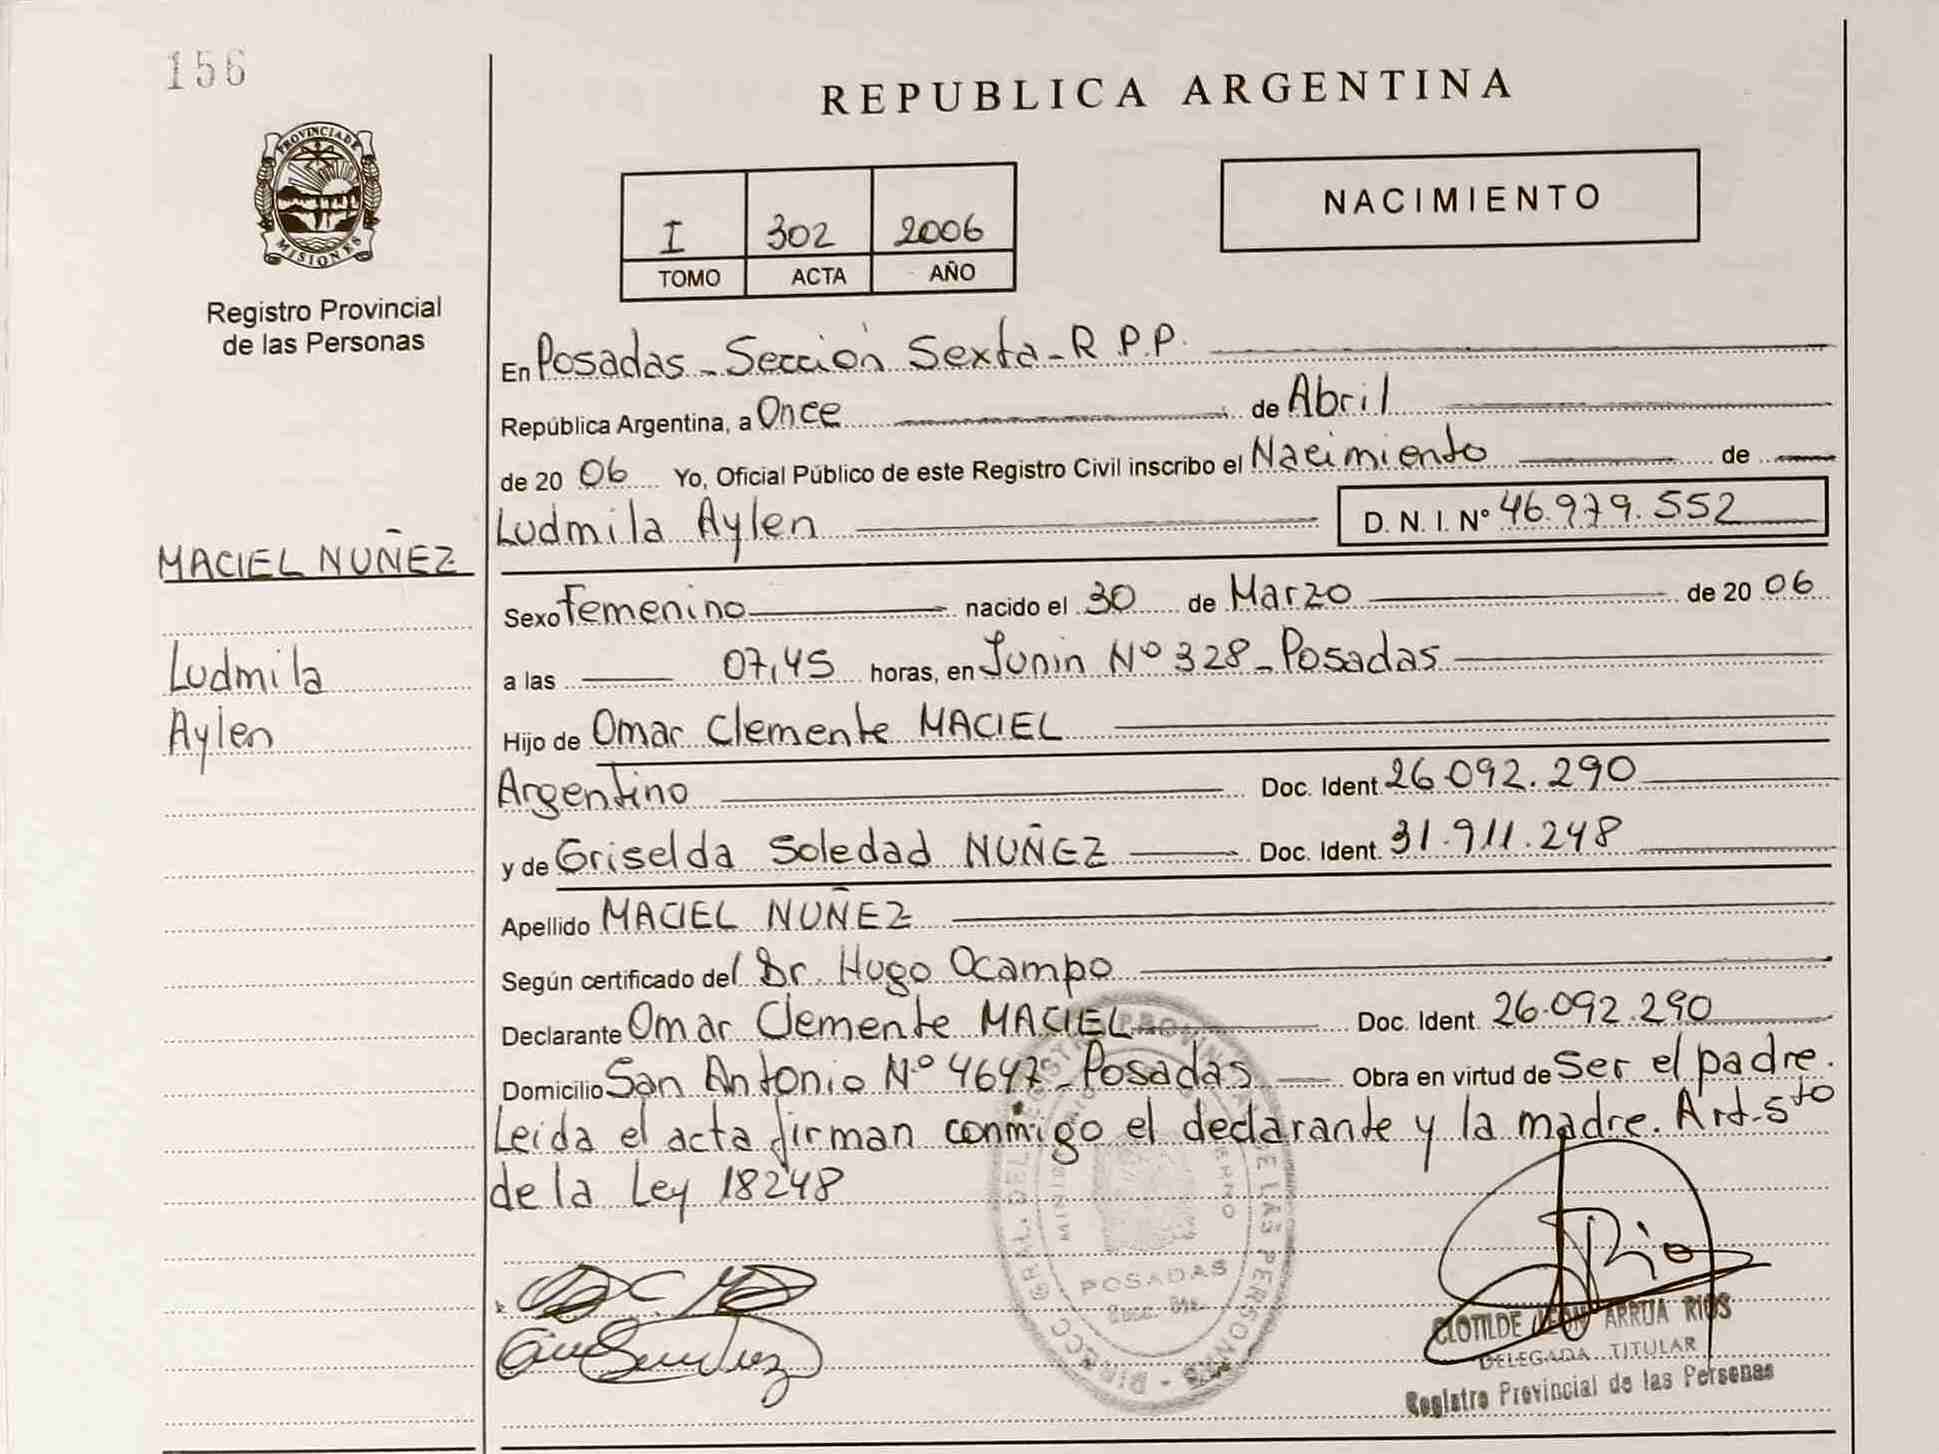 156
REPUBLICA ARGENTINA
PROVINCIA DE
MISIONES
Registro Provincial
de las Personas
I 302 2006
TOMO ACTA AÑO
NACIMIENTO
En Posadas - Sección Sexta - R.P.P.
República Argentina, a Once de Abril
de 20 06 Yo, Oficial Público de este Registro Civil inscribo el Nacimiento de
Ludmila Aylen D. N. I. Nº 46.979.552
MACIEL NUÑEZ
Ludmila
Aylen
Sexo Femenino nacido el 30 de Marzo de 20 06
a las 07,45 horas, en Junin Nº 328 - Posadas
Hijo de Omar Clemente MACIEL
Argentino Doc. Ident. 26.092.290
y de Griselda Soledad NUÑEZ Doc. Ident. 31.911.248
Apellido MACIEL NUÑEZ
Según certificado del Dr. Hugo Ocampo
Declarante Omar Clemente MACIEL Doc. Ident. 26.092.290
Domicilio San Antonio Nº 4647 - Posadas Obra en virtud de Ser el padre.
Leida el acta firman conmigo el declarante y la madre. Art. 5to
de la Ley 18248
POSADAS
CLOTILDE LEON ARRUA RIOS
DELEGADA TITULAR
Registro Provincial de las Personas